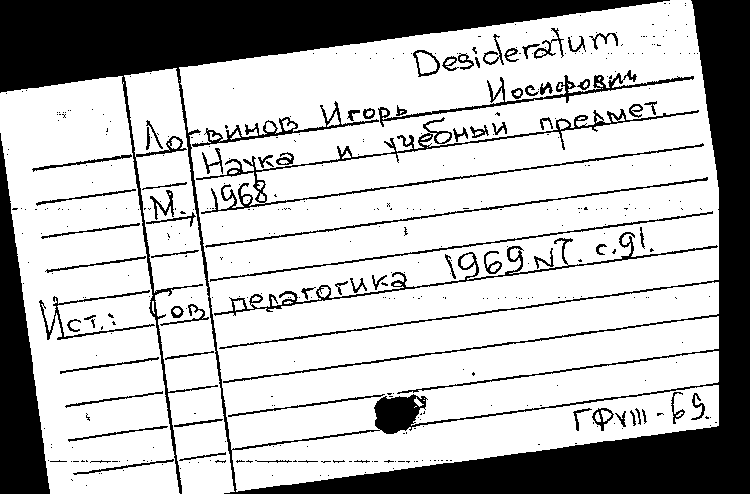 Desideratum
Логвинов Игорь Иосифович
Наука и учебный предмет.
М., 1968.
Ист.: Сов педагогика 1969 N7. с.91.
ГФVIII-69.